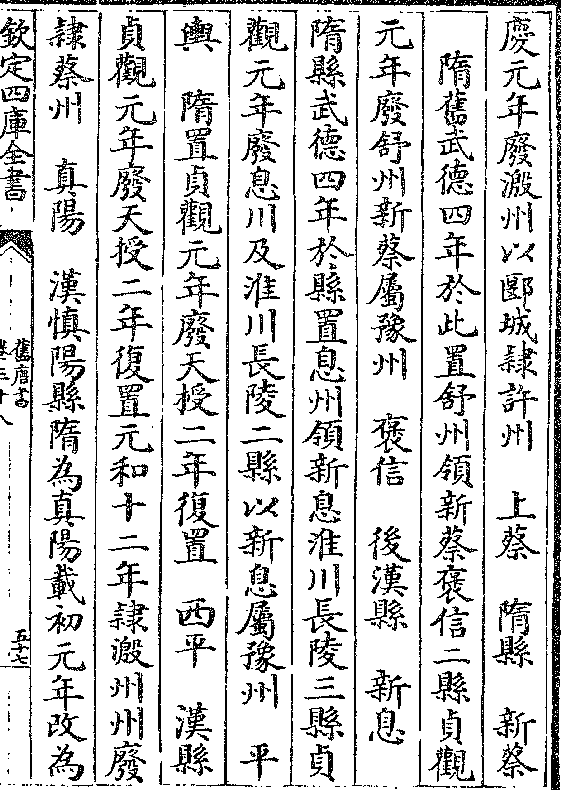 慶元年廢溵州以郾城隷許州　上蔡　隋縣　新蔡
隋舊武德四年於此置舒州領新蔡褒信二縣貞觀
元年廢舒州新蔡屬豫州　褒信　後漢縣　新息
隋縣武德四年於縣置息州領新息淮川長陵三縣貞
觀元年廢息川及淮川長陵二縣以新息屬豫州　平
輿　隋置貞觀元年廢天授二年復置　西平　漢縣
貞觀元年廢天授二年復置元和十二年隷溵州州廢
隷蔡州　真陽　漢慎陽縣隋為真陽載初元年改為
欽定四庫全書
舊唐書
卷三十八
五十七